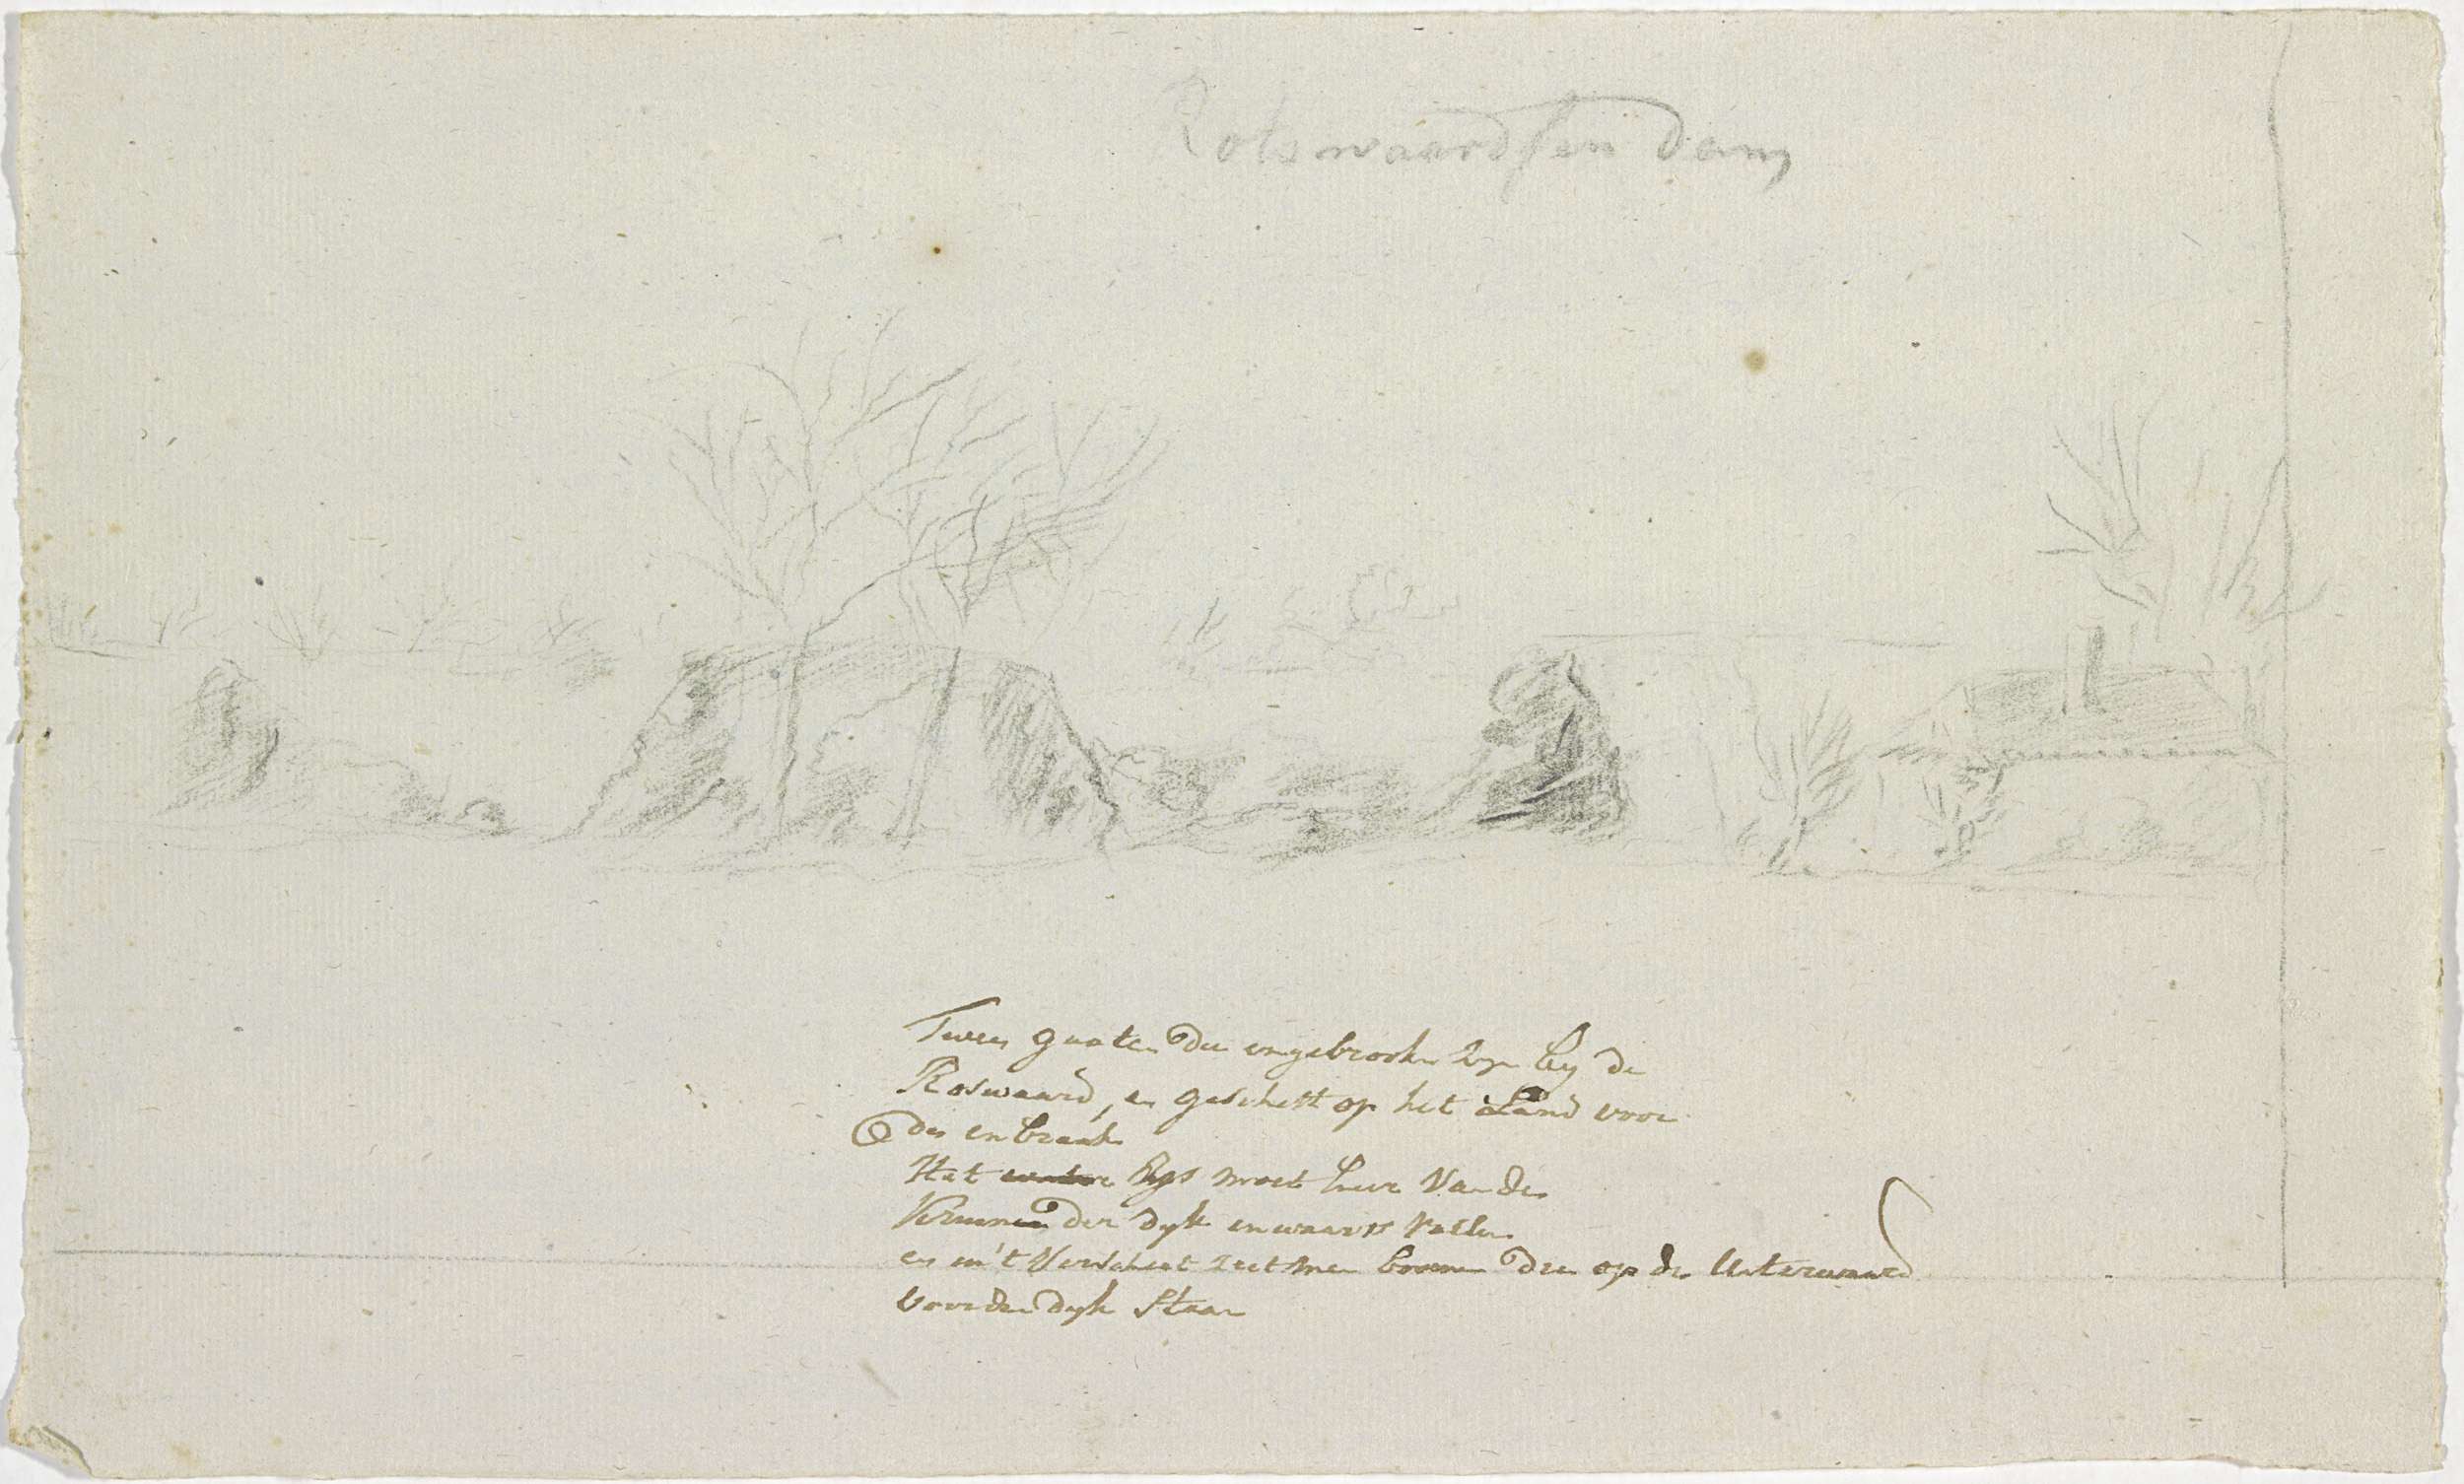 Rolswaardsen dam
Twee gaaten die ingebrooken zyn by de
Roswaard, en geschett op het Land voor
de inbraak
Het Eys moet hier van de
der dyk inwaarts vallen
en in't Verschiet ziet men boomen die op de Uiterwaard
voor den dyk staan